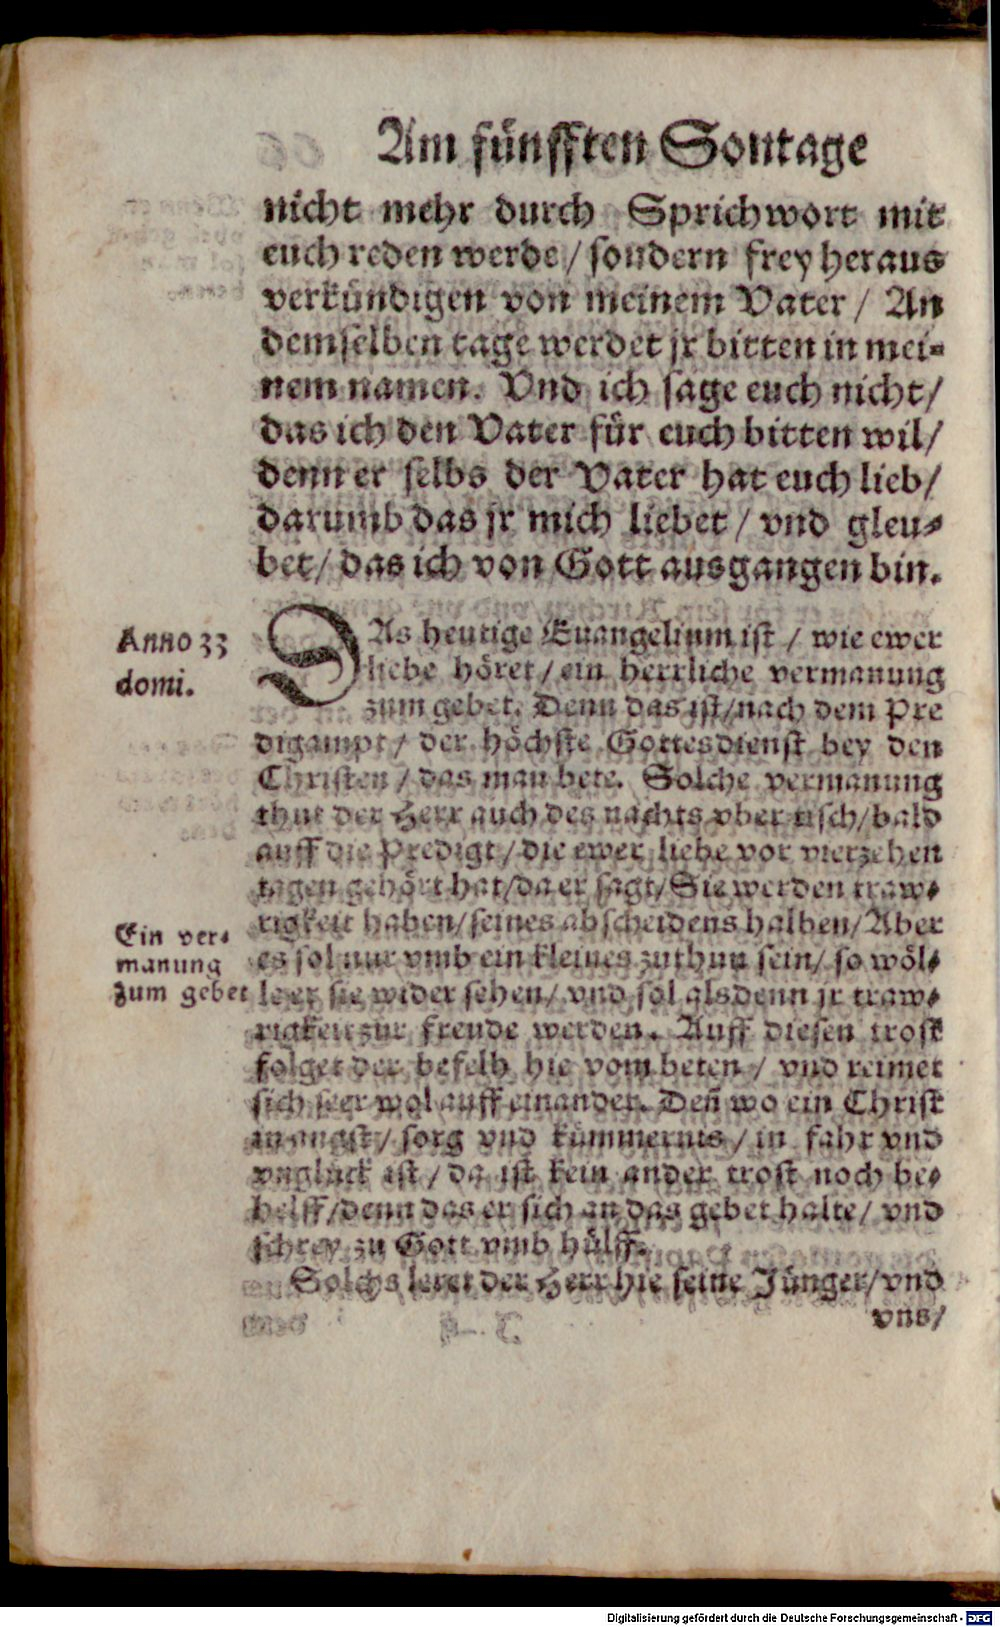 Am fünfften Sontage
nicht mehr durch Sprichwort mit
euch reden werde / sondern frey heraus
verkündigen von meinem Vater / An
demselben tage werdet jr bitten in mei-
nem namen. Vnd ich sage euch nicht /
das ich den Vater für euch bitten wil /
denn er selbs der Vater hat euch lieb /
darumb das jr mich liebet / vnd gleu-
bet / das ich von Gott ausgangen bin.
Anno 33
domi.
DAs heutige Euangelium ist / wie ewer
liebe höret / ein herrliche vermanung
zum gebet. Denn das ist / nach dem Pre
digampt / der höchste Gottesdienst bey den
Christen / das man bete. Solche vermanung
thut der Herr auch des nachts vber tisch / bald
auff die Predigt / die ewer liebe vor vierzehen
tagen gehört hat / da er sagt / Sie werden traw-
rigkeit haben / seines abscheidens halben / Aber
Ein ver-
manung
zum gebet
es sol nur vmb ein kleines zuthun sein / so wöl-
le er sie wider sehen / vnd sol alsdenn jr traw-
rigkeit zur freude werden. Auff diesen trost
folget der befelh hie vom beten / vnd reimet
sich seer wol auff einander. Deñ wo ein Christ
in angst / sorg vnd kümmernis / in fahr vnd
vnglück ist / da ist kein ander trost noch be-
helff / denn das er sich an das gebet halte / vnd
schrey zu Gott vmb hülff.
Solchs leret der Herr hie seine Jünger / vnd
vns /
Digitalisierung gefördert durch die Deutsche Forschungsgemeinschaft - DFG